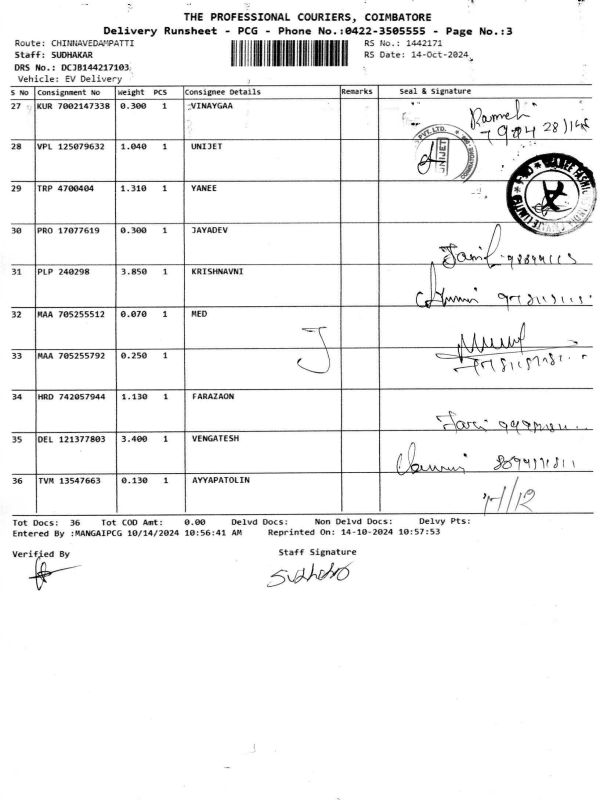 THE PROFESSIONAL COURIERS, COIMBATORE
Delivery Runsheet - PCG - Phone No.:0422-3505555 - Page No.:3
Route: CHINNAVEDAMPATTI RS No.: 1442171
Staff: SUDHAKAR RS Date: 14-Oct-2024
DRS No.: DCJB144217103
Vehicle: EV Delivery
S No Consignment No Weight PCS Consignee Details Remarks Seal & Signature
27 KUR 7002147338 0.300 1 VINAYGAA
Ramesh
28 VPL 125079632 1.040 1 UNIJET
PVT.LTD. UNIJET
29 TRP 4700404 1.310 1 YANEE
30 PRO 17077619 0.300 1 JAYADEV
31 PLP 240298 3.850 1 KRISHNAVNI
32 MAA 705255512 0.070 1 MED
33 MAA 705255792 0.250 1
34 HRD 742057944 1.130 1 FARAZAON
35 DEL 121377803 3.400 1 VENGATESH
36 TVM 13547663 0.130 1 AYYAPATOLIN
Tot Docs: 36 Tot COD Amt: 0.00 Delvd Docs: Non Delvd Docs: Delvy Pts:
Entered By :MANGAIPCG 10/14/2024 10:56:41 AM Reprinted On: 14-10-2024 10:57:53
Verified By Staff Signature